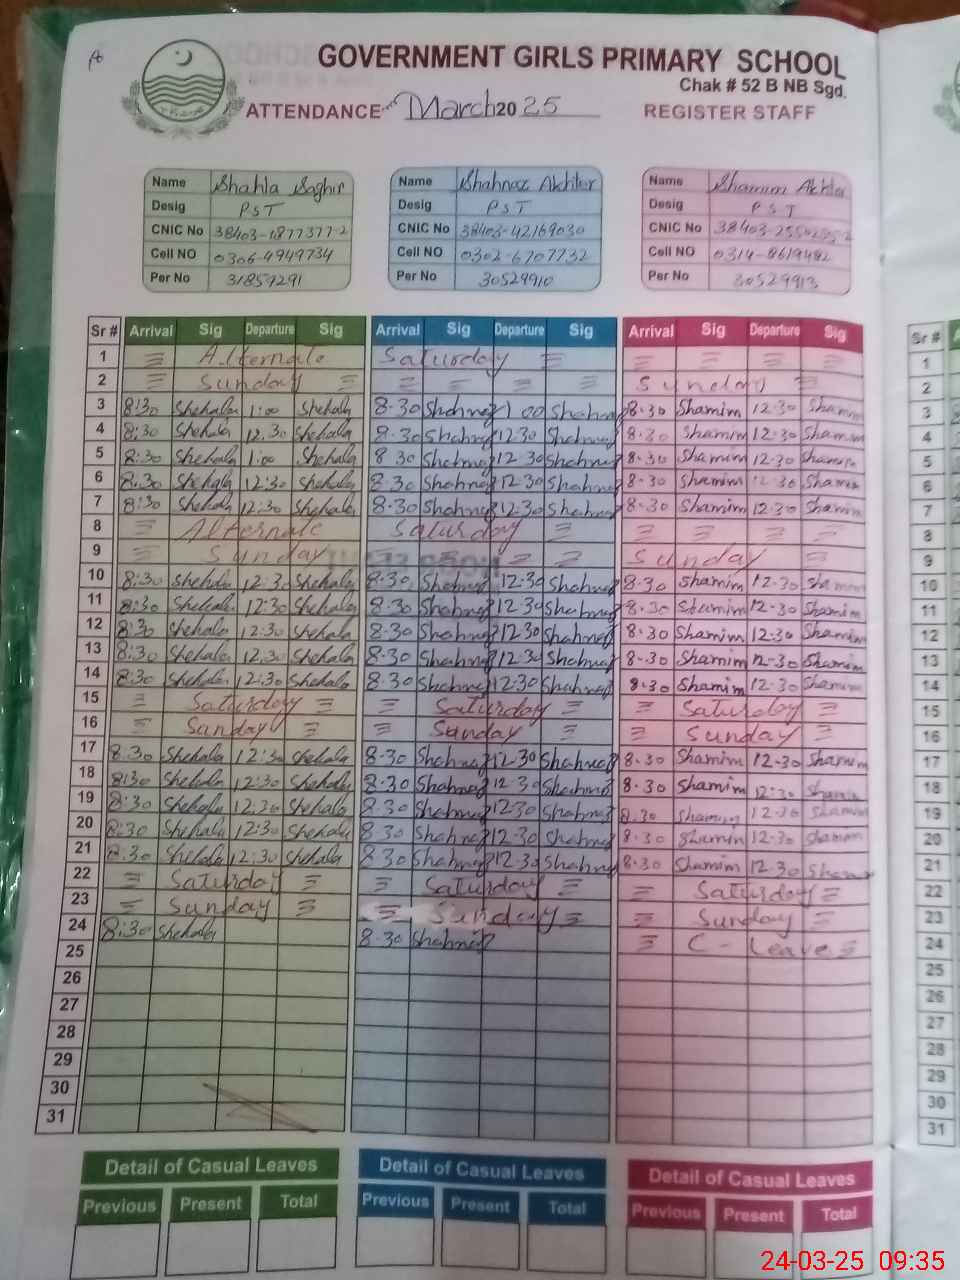 GOVERNMENT GIRLS PRIMARY SCHOOL
Chak # 52 B NB Sgd.
ATTENDANCE March 2025 REGISTER STAFF
Name Shahla Saghir Name Shahnaz Akhter Name Shamim Akhter
Desig PST Desig PST Desig PST
CNIC No 38403-1877377-2 CNIC No 38403-42169030 CNIC No
Cell NO 0306-4949734 Cell NO 0302-6707732 Cell NO 0314-8619482
Per No 31859291 Per No 30529910 Per No 30529913
Sr # Arrival Sig Departure Sig Arrival Sig Departure Sig Arrival Sig Departure Sig
1 Alternate Saturday
2 Sunday Sunday
3 8:30 Shehala 1:00 Shehala 8.30 Shahnaz 1 00 Shahnaz 8.30 Shamim 12-30 Shamim
4 8:30 Shehala 12.30 Shehala 8.30 Shahnaz 12-30 Shahnaz 8.30 Shamim 12-30 Shamim
5 8:30 Shehala 1:00 Shehala 8 30 Shahnaz 12-30 Shahnaz 8.30 Shamim 12-30 Shamim
6 8:30 Shehala 12:30 Shehala 8.30 Shahnaz 12-30 Shahnaz 8-30 Shamim 12-30 Shamim
7 8:30 Shehala 12:30 Shehala 8.30 Shahnaz 12-30 Shahnaz 8-30 Shamim 12-30 Shamim
8 Alternate Saturday
9 Sunday Sunday
10 8:30 Shehala 12:30 Shehala 8.30 Shahnaz 12-30 Shahnaz 8-30 Shamim 12-30 Shamim
11 8:30 Shehala 12:30 Shehala 8.30 Shahnaz 12-30 Shahnaz 8.30 Shamim 12-30 Shamim
12 8:30 Shehala 12:30 Shehala 8.30 Shahnaz 12-30 Shahnaz 8.30 Shamim 12-30 Shamim
13 8:30 Shehala 12:30 Shehala 8.30 Shahnaz 12-30 Shahnaz 8-30 Shamim 12-30 Shamim
14 8:30 Shehala 12:30 Shehala 8.30 Shahnaz 12-30 Shahnaz 8-30 Shamim 12-30 Shamim
15 Saturday Saturday Saturday
16 Sunday Sunday Sunday
17 8:30 Shehala 12:30 Shehala 8-30 Shahnaz 12-30 Shahnaz 8-30 Shamim 12-30 Shamim
18 8:30 Shehala 12:30 Shehala 8.30 Shahnaz 12-30 Shahnaz 8-30 Shamim 12:30 Shamim
19 8:30 Shehala 12:30 Shehala 8.30 Shahnaz 12-30 Shahnaz 8.30 Shamim 12-30 Shamim
20 8:30 Shehala 12:30 Shehala 8 30 Shahnaz 12-30 Shahnaz 8-30 Shamim 12-30 Shamim
21 8:30 Shehala 12:30 Shehala 8 30 Shahnaz 12-30 Shahnaz 8-30 Shamim 12-30 Shamim
22 Saturday Saturday Saturday
23 Sunday Sunday Sunday
24 8:30 Shehala 8-30 Shahnaz C-Leave
25
26
27
28
29
30
31
Detail of Casual Leaves Detail of Casual Leaves Detail of Casual Leaves
Previous Present Total Previous Present Total Previous Present Total
24-03-25 09:35